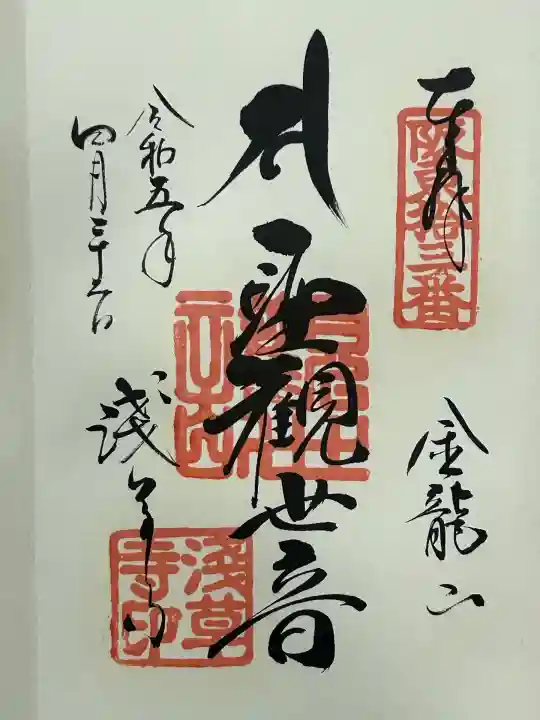 奉拝
阪東拾三番
金龍山
聖観世音
令和五年
四月三十六日
浅草寺
浅草寺印